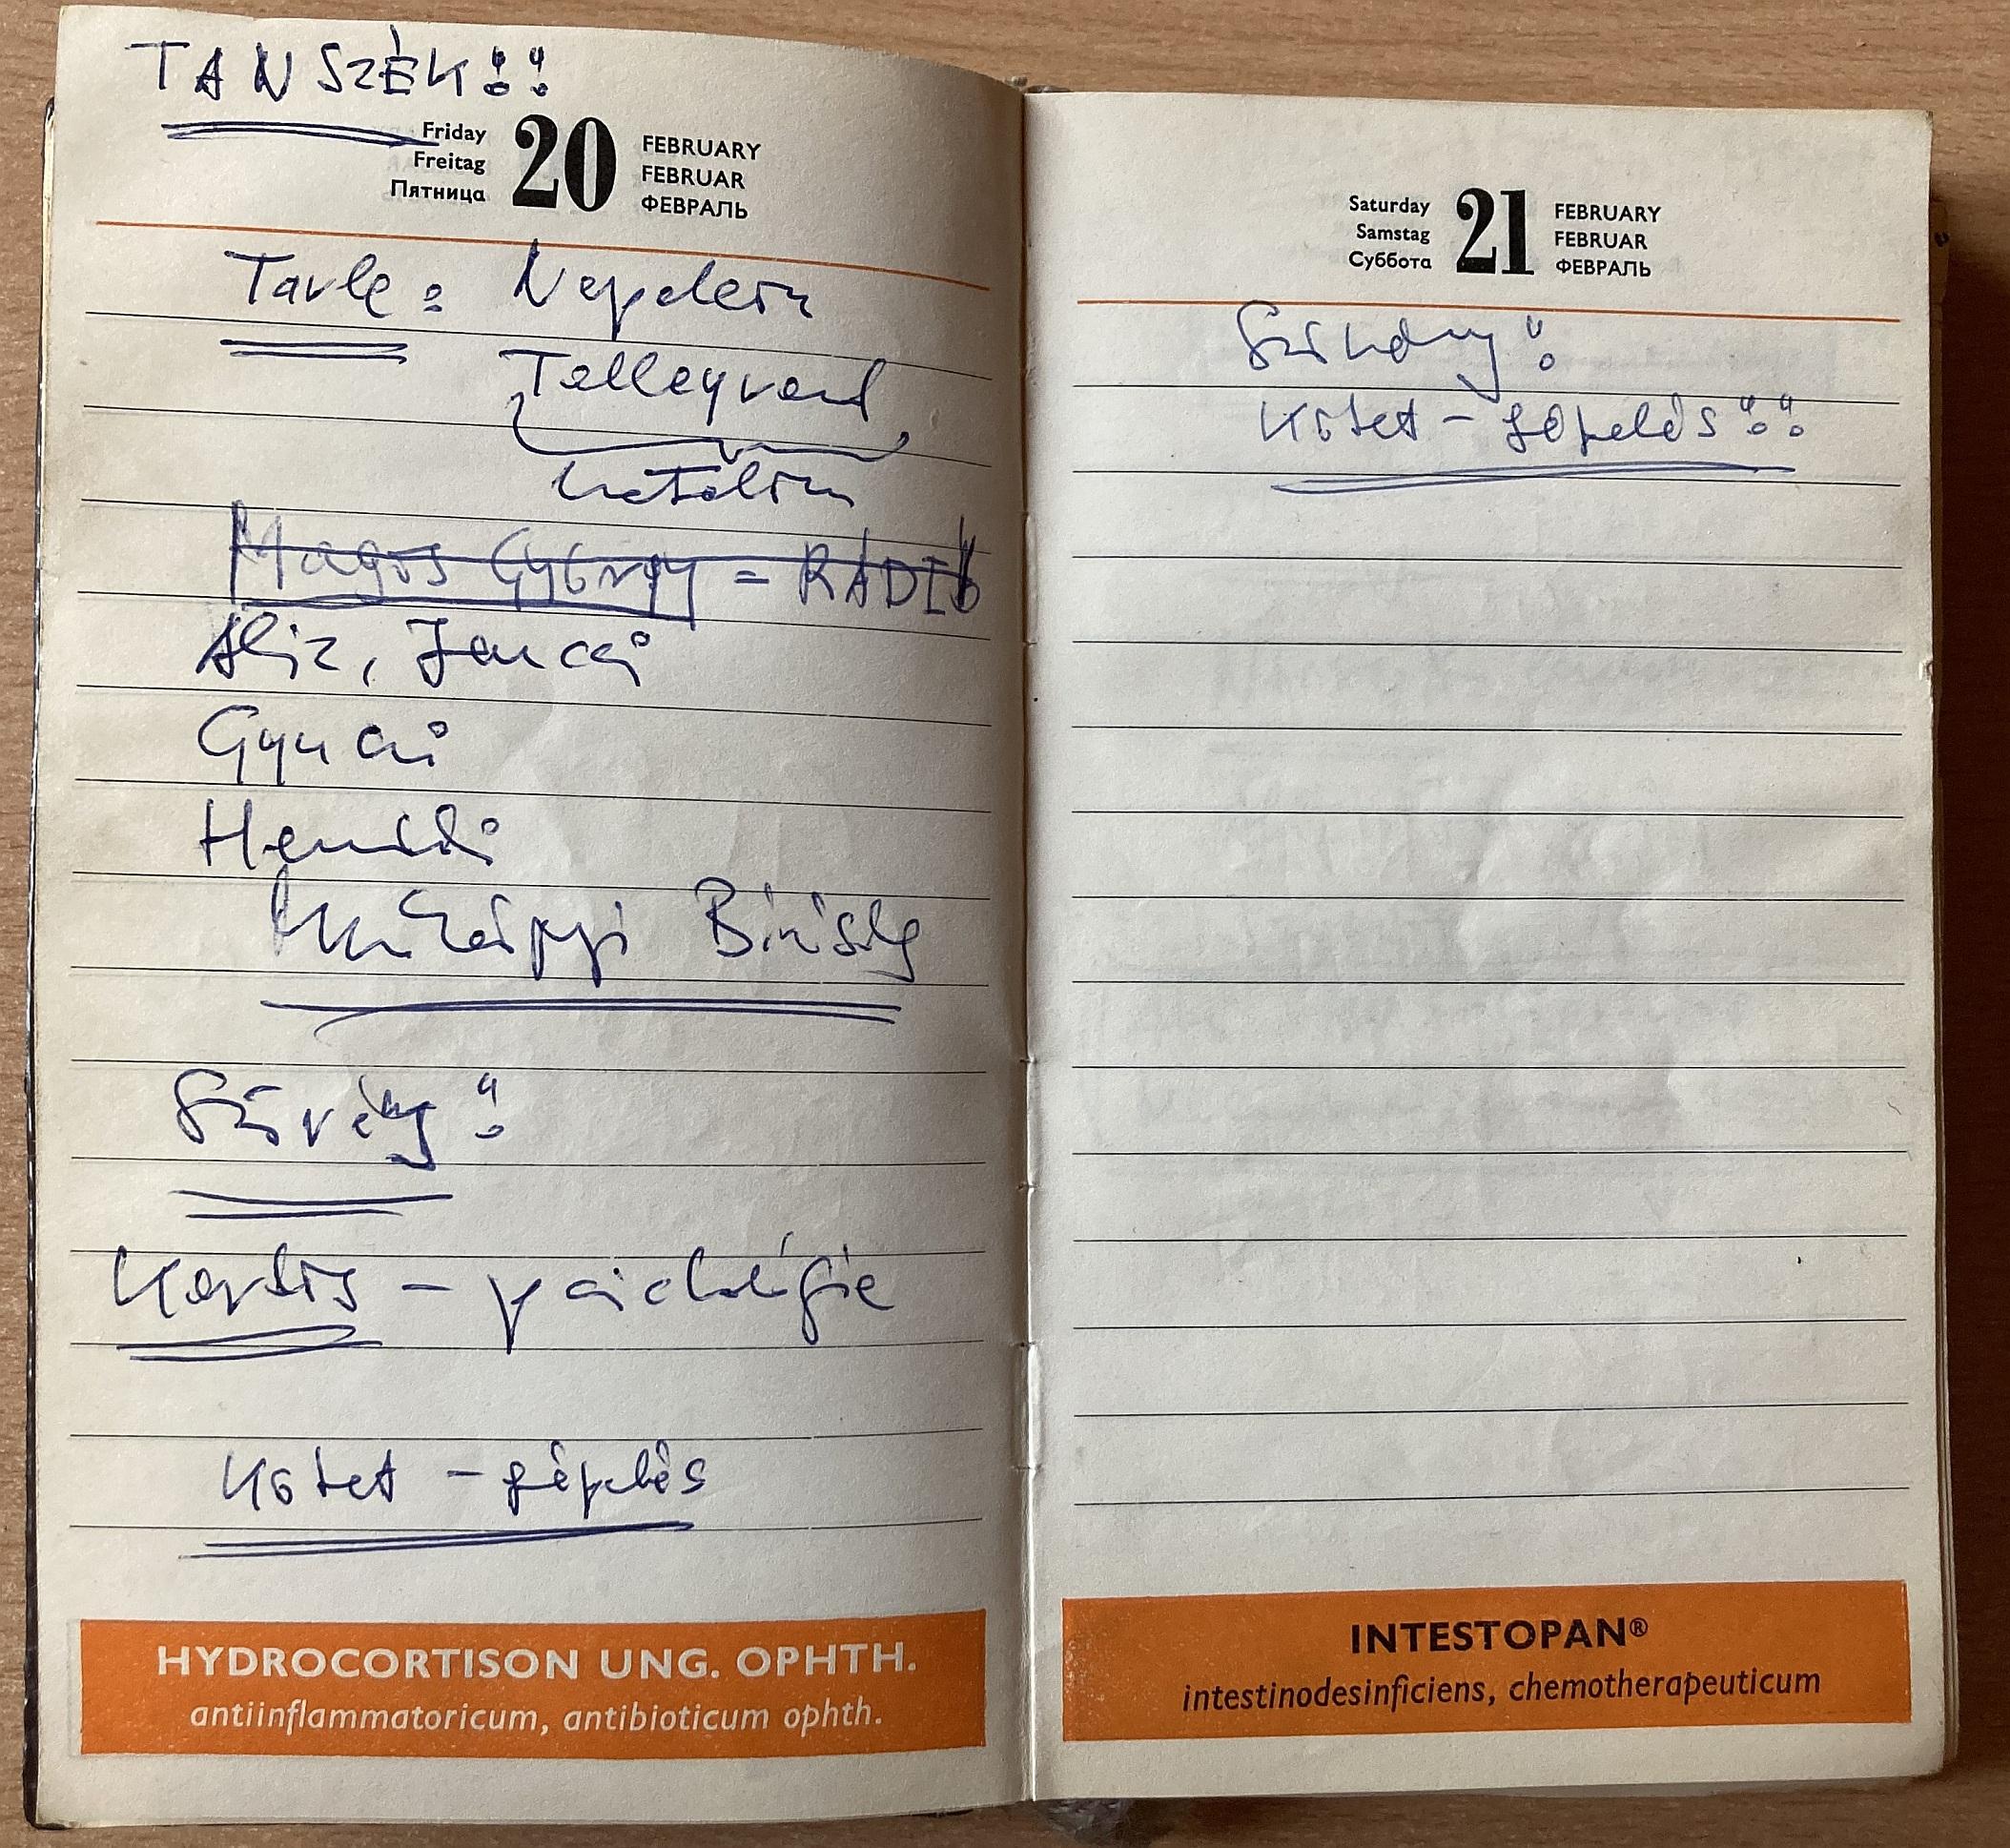 TANSZÉK!!
Friday
Freitag
Пятница
20
FEBRUARY
FEBRUAR
ФЕВРАЛЬ
Tarle: Napoleon
Talleyrand
Magos György = RÁDIÓ
Aliz, Jancsi
Gyuri
Munkaügyi Bíróság
Kardos - pszichológia
Kötet - gépelés
HYDROCORTISON UNG. OPHTH.
antiinflammatoricum, antibioticum ophth.
Saturday
Samstag
Суббота
21
FEBRUARY
FEBRUAR
ФЕВРАЛЬ
Kötet - gépelés!!
INTESTOPAN®
intestinodesinficiens, chemotherapeuticum